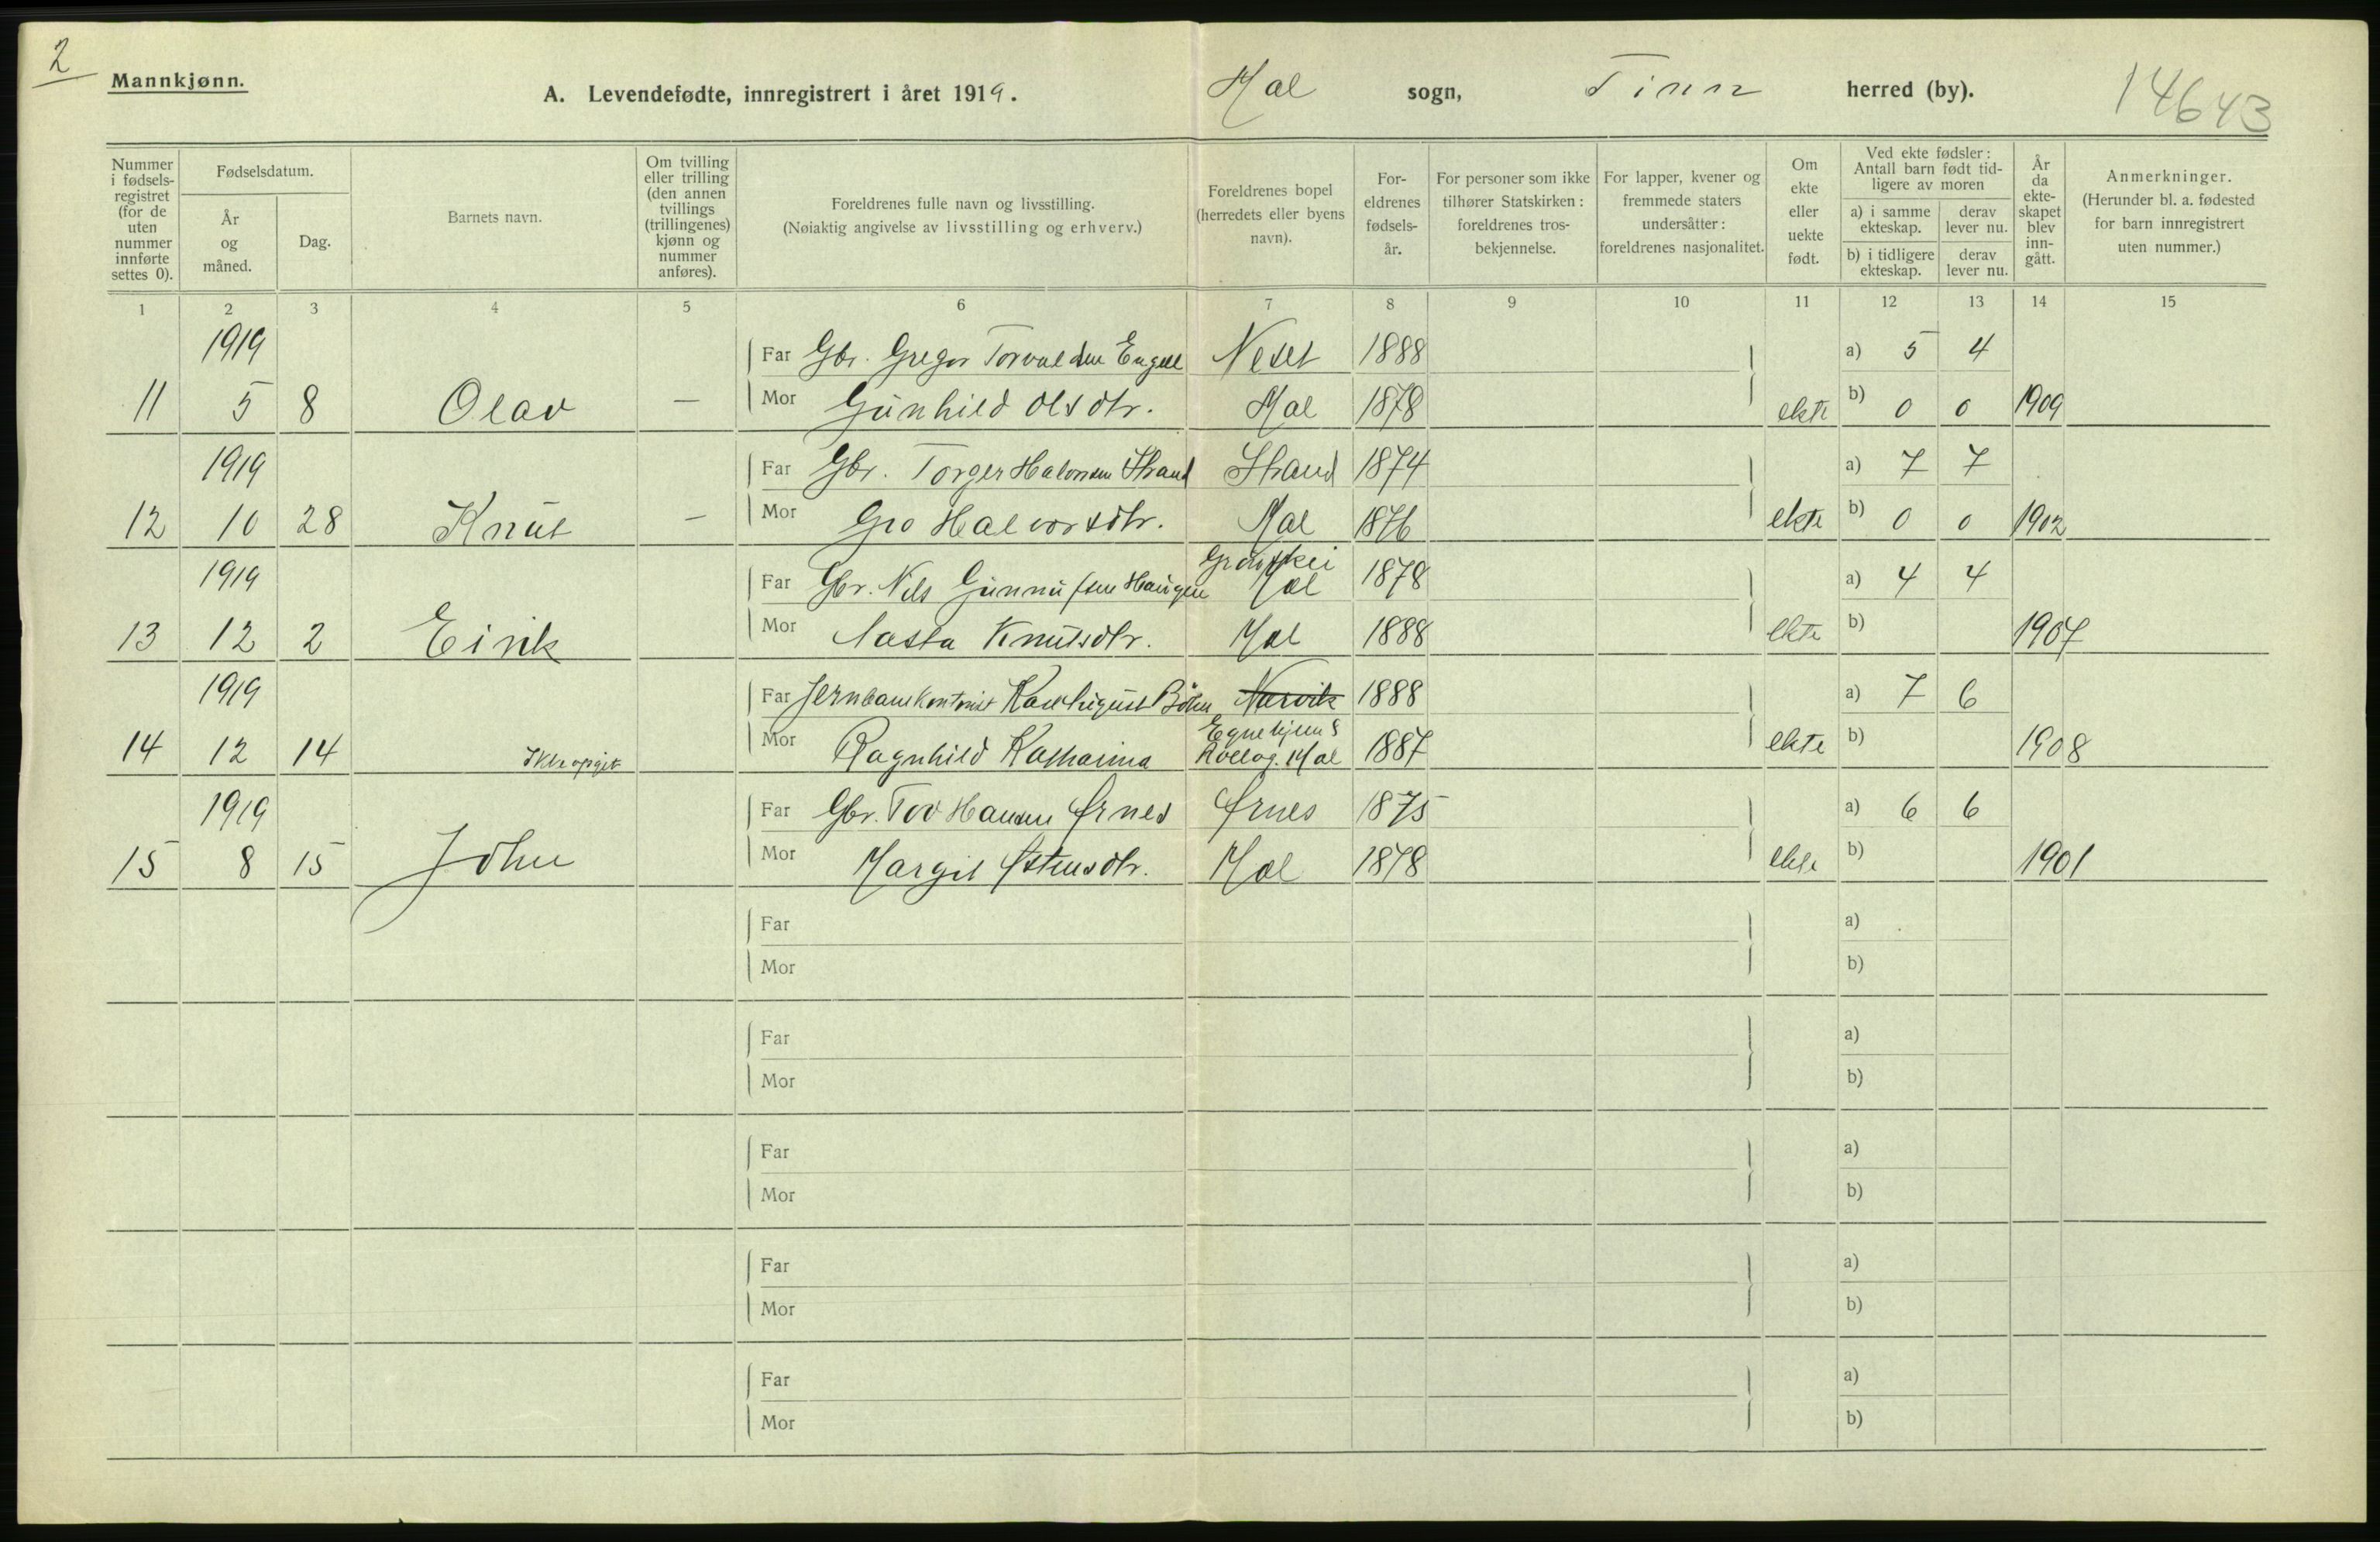 2
Mannkjønn.
A. Levendefødte, innregistrert i året 1919.
Mæl sogn, Tinn herred (by).
14643
Nummer i fødsels-registret (for de uten nummer innførte settes 0).
Fødselsdatum.
År og måned.
Dag.
Barnets navn.
Om tvilling eller trilling (den annen tvillings (trillingenes) kjønn og nummer anføres).
Foreldrenes fulle navn og livsstilling.
(Nøiaktig angivelse av livsstilling og erhverv.)
Foreldrenes bopel (herredets eller byens navn).
For-eldrenes fødsels-år.
For personer som ikke tilhører Statskirken: foreldrenes tros-bekjennelse.
For lapper, kvener og fremmede staters undersåtter: foreldrenes nasjonalitet.
Om ekte eller uekte født.
Ved ekte fødsler: Antall barn født tid-ligere av moren
a) i samme ekteskap.
derav lever nu.
b) i tidligere ekteskap.
derav lever nu.
År da ekte-skapet blev inn-gått.
Anmerkninger.
(Herunder bl. a. fødested for barn innregistrert uten nummer.)
1 2 3 4 5 6 7 8 9 10 11 12 13 14 15
1919 Far Gbr. Gregor Torvaldsen Neset 1888 a) 5 4
11 5 8 Olav — Mor Gunhild Olsdtr. Mæl 1878 ekte b) 0 0 1909
1919 Far Gbr. Torger Halvorsen Strand Strand 1874 a) 7 7
12 10 28 Knut — Mor Gro Halvorsdtr. Mæl 1876 ekte b) 0 0 1902
1919 Far Gbr. Nils Gunnufsen Haugen Mæl 1878 a) 4 4
13 12 2 Eirik Mor Aasta Knutsdtr. Mæl 1888 ekte b) 1907
1919 Far Jernbanekontorist Karl August Narvik 1888 a) 7 6
14 12 14 Ikke opgit Mor Ragnhild Katharina Egnehjem 8 Rollag. Mæl 1887 ekte b) 1908
1919 Far Gbr. Tov Hansen Ørnes Ørnes 1875 a) 6 6
15 8 15 John Mor Margit Østensdtr. Mæl 1878 ekte b) 1901
Far a)
Mor b)
Far a)
Mor b)
Far a)
Mor b)
Far a)
Mor b)
Far a)
Mor b)